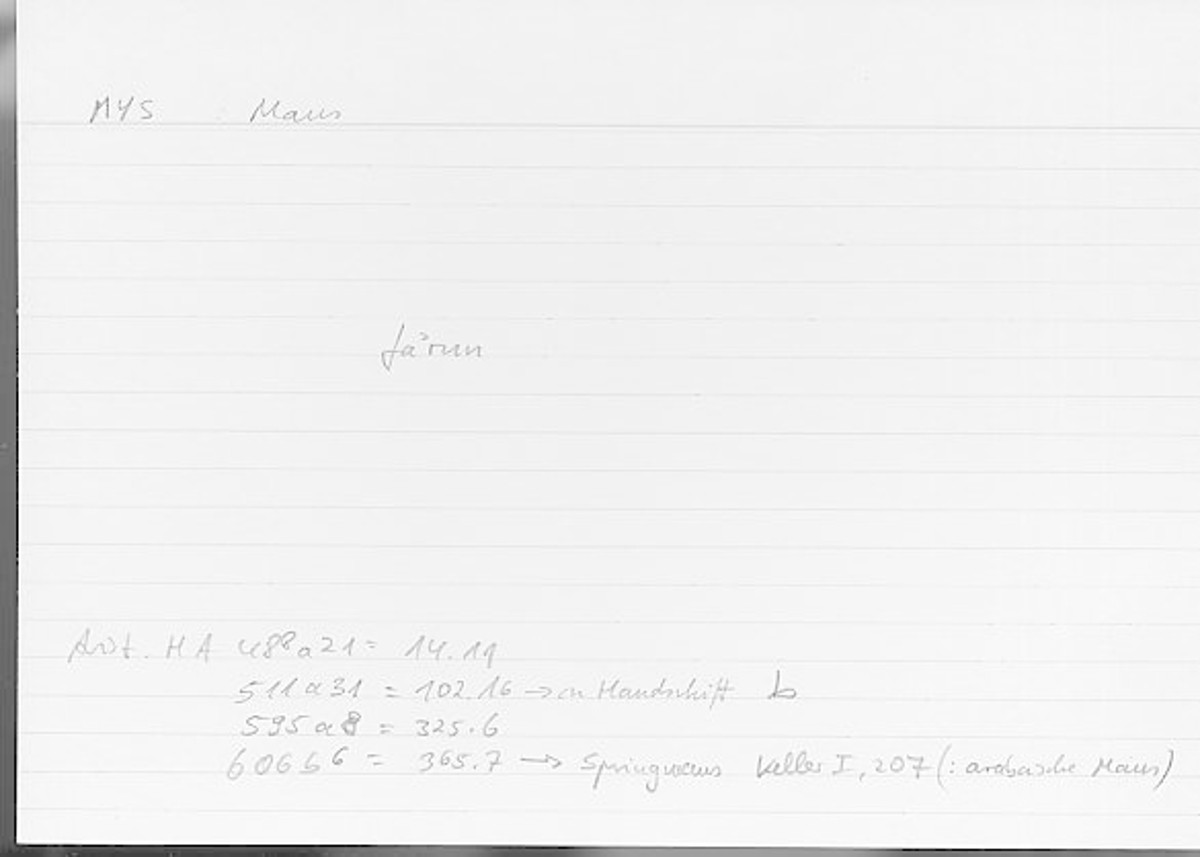 MYS Maus
fa'run
Arist. HA 488a21 = 14.19
511a31 = 102.16 → in Handschrift b
595a8 = 325.6
606b6 = 365.7 → Springmaus Keller I, 207 (: arabische Maus)